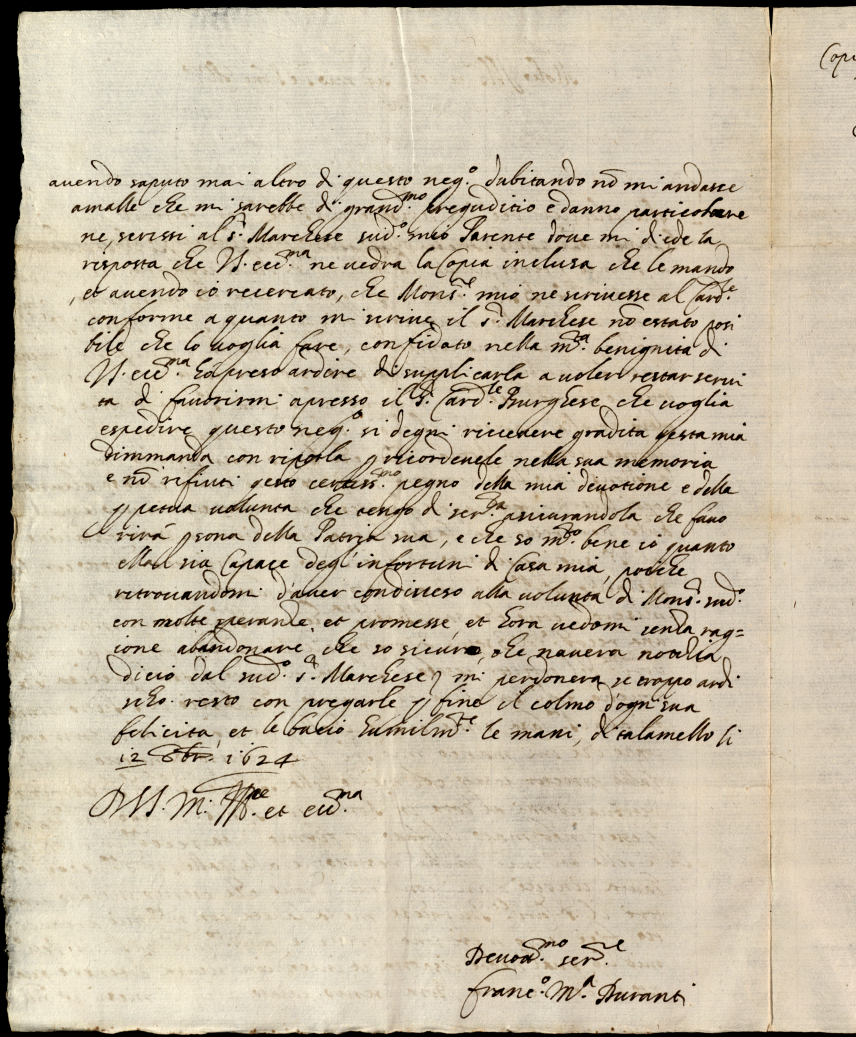 Copi
auendo saputo mai altro di questo neg.º dubitando nõ mi andasse
amalle che mi sarebbe di grand.mo preguditio e danno particolare
ne, scrissi al s.r Marchese sud.º mio Parente doue mi diede la
risposta che V. ecc.ma ne uedra la Copia inclusa che le mando
, et auendo io recercato, che Mons.re mio ne scriuesse al Card.le
conforme a quanto mi scriue il s.r Marchese nõ estato posi
bile che lo uoglia fare, confidato nella m.ta benignita di
V. ecc.ma ho preso ardire di supplicarla a uoler restar serui
ta di fauorirmi apresso il s.r Card.le Burghese che uoglia
espedire questo neg.º si degni riceuere gradita questa mia
dimmanda con riporla p ricordeuele nella sua memoria
e nõ rifiuti questo certiss.mo pegno della mia deuotione e della
ppetua uolunta che tengo di ser.la asicurandola che fauo
rirà psona della Patria sua, e che so m.to bene io quanto
ella sia Capace degl'infortuni di Casa mia, poiche
retrouandomi d'auer condisceso alla uolunta di Mons.r sud.º
con molte speranze, et promesse, et hora uedomi senza rag=
ione abandonare, che so sicuro, che nauera notitia
dicio dal sud.º s.r Marchese, mi perdonera se troppo ardi
scho. resto con pregarle p fine il colmo d'ogni sua
felicita, et le bacio humilm.te le mani, di talamello li
12 Obre 1624
D V. S. M. Ill.re et ecc.ma
Deuot.mo ser.re
Franc.º M.a Duranti